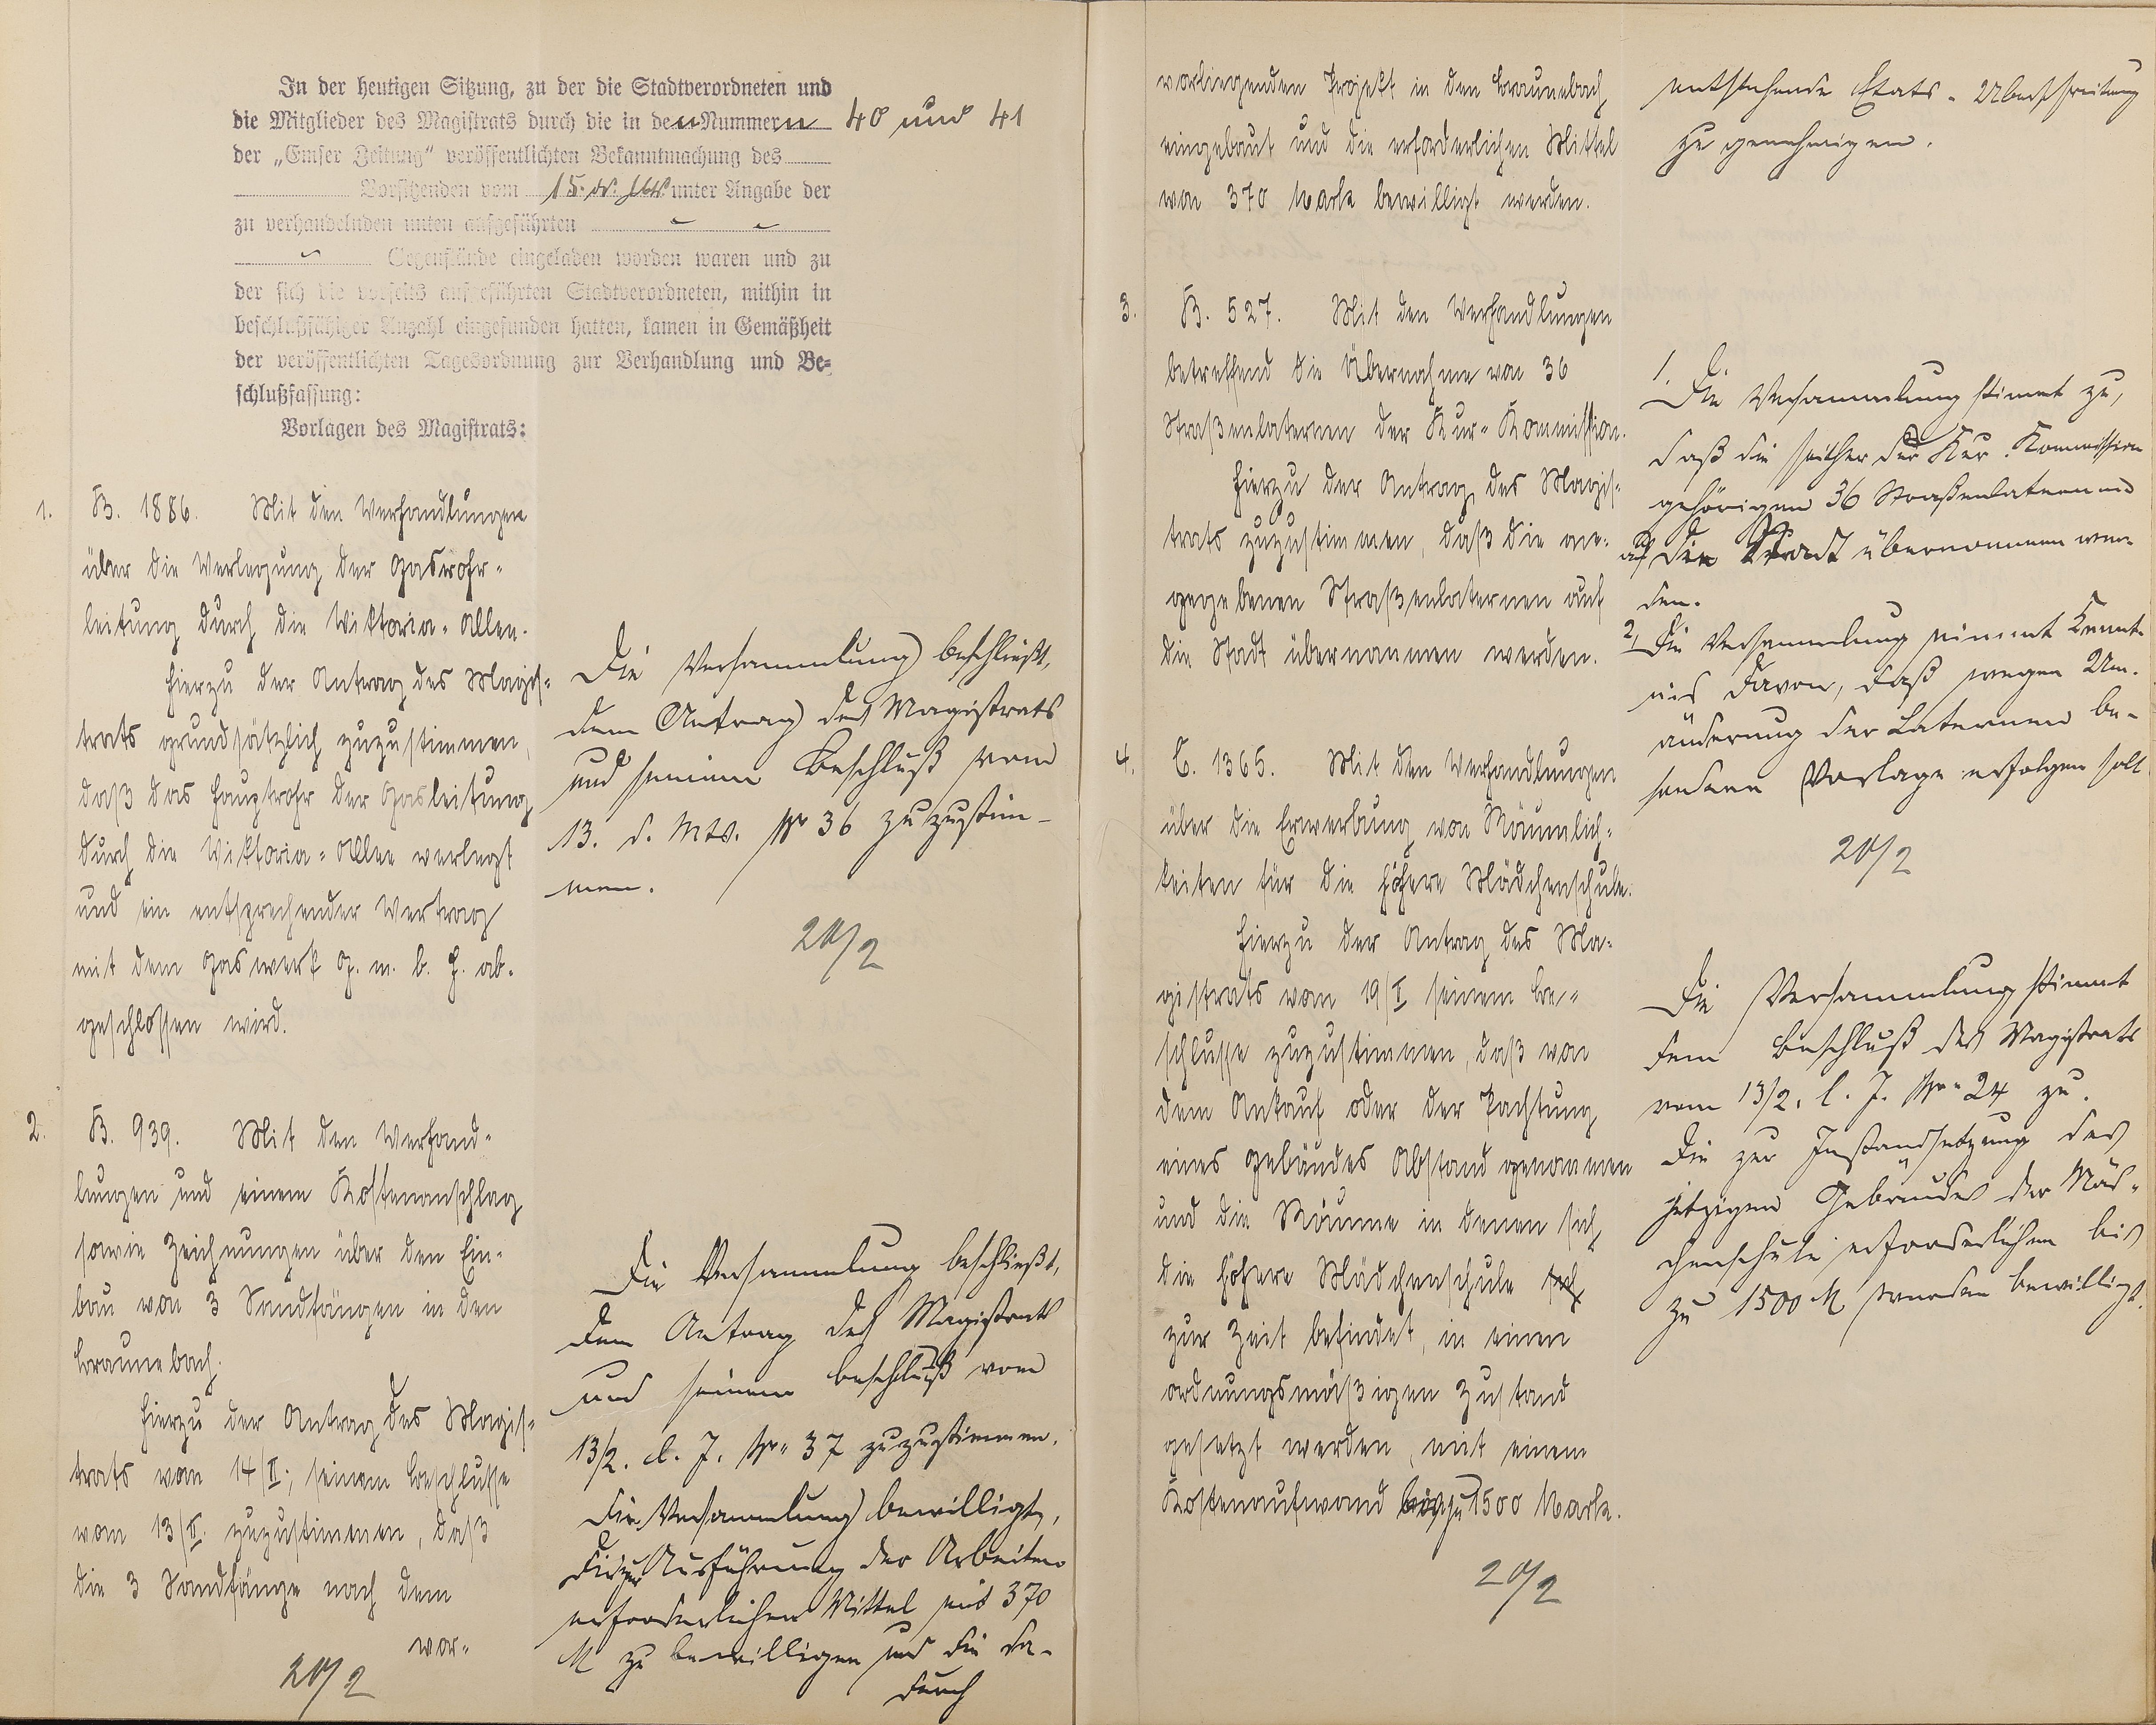 In der heutigen Sitzung, zu der die Stadtverordneten und
die Mitglieder des Magistrats durch die in den Nummern 40 und 41
der „Emser Zeitung" veröffentlichten Bekanntmachung des
Vorsitzenden vom 15. d. Mts. unter Angabe der
zu verhandelnden unten aufgeführten
Gegenstände eingeladen worden waren und zu
der sich die vorseits aufgeführten Stadtverordneten, mithin in
beschlußfähiger Anzahl eingefunden hatten, kamen in Gemäßheit
der veröffentlichten Tagesordnung zur Verhandlung und Be-
schlußfassung:
Vorlagen des Magistrats:
1. B. 1886. Mit den Verhandlungen
über die Verlegung der Gasrohr-
leitung durch die Viktoria-Allee.
Hierzu der Antrag des Magis-
trats grundsätzlich zuzustimmen,
daß das Hauptrohr der Gasleitung
durch die Viktoria-Allee verlegt
und ein entsprechender Vertrag
mit dem Gaswerk G. m. b. H. ab-
geschlossen wird.
Die Versammlung beschließt,
dem Antrag des Magistrats
und seinem Beschluß vom
13. d. Mts. Nr 36 zuzustim-
men.
20/2
2. B. 939. Mit den Verhand-
lungen und einem Kostenanschlag
sowie Zeichnungen über den Ein-
bau von 3 Sandfängen in den
Braunebach.
Hierzu der Antrag des Magis-
trats vom 14/II., seinem Beschlusse
vom 13/II. zuzustimmen, daß
die 3 Sandfänge nach dem
vor-
20/2
Die Versammlung beschließt,
dem Antrag des Magistrats
und seinem Beschluß vom
13/2. d. J. Nr. 37 zuzustimmen.
Die Versammlung bewilligt,
die zur Ausführung der Arbeiten
erforderlichen Mittel mit 370
M zu bewilligen und die da-
durch
vorliegenden Projekt in den Braunebach
eingebaut und die erforderlichen Mittel
von 370 Mark bewilligt werden.
entstehende Etats-Überschreitung
zu genehmigen.
3. B. 527. Mit den Verhandlungen
betreffend die Übernahme von 36
Straßenlaternen der Kur-Kommission.
Hierzu der Antrag des Magis-
trats zuzustimmen, daß die an-
gegebenen Straßenlaternen auf
die Stadt übernommen werden.
1. Die Versammlung stimmt zu,
daß die seither der Kur-Kommission
gehörigen 36 Straßenlaternen
auf die Stadt übernommen wer-
den.
2, Die Versammlung nimmt Kennt-
nis davon, daß wegen Um-
änderung der Laternen be-
sondere Vorlage erfolgen soll
20/2
4. C. 1365. Mit den Verhandlungen
über die Erwerbung von Räumlich-
keiten für die höhere Mädchenschule.
Hierzu der Antrag des Ma-
gistrats vom 19/I seinem Be-
schlusse zuzustimmen, daß von
dem Ankauf oder der Pachtung
eines Gebäudes Abstand genommen
und die Räume in denen sich
die höhere Mädchenschule
zur Zeit befindet, in einen
ordnungsmäßigen Zustand
gesetzt werden, mit einem
Kostenaufwand bis zu 1500 Mark.
20/2
Die Versammlung stimmt
dem Beschluß des Magistrats
vom 13/2. l. J. Nr. 24 zu.
Die zur Instandsetzung des
jetzigen Gebäudes der Mäd-
chenschule erforderlichen bis
zu 1500 M werden bewilligt.